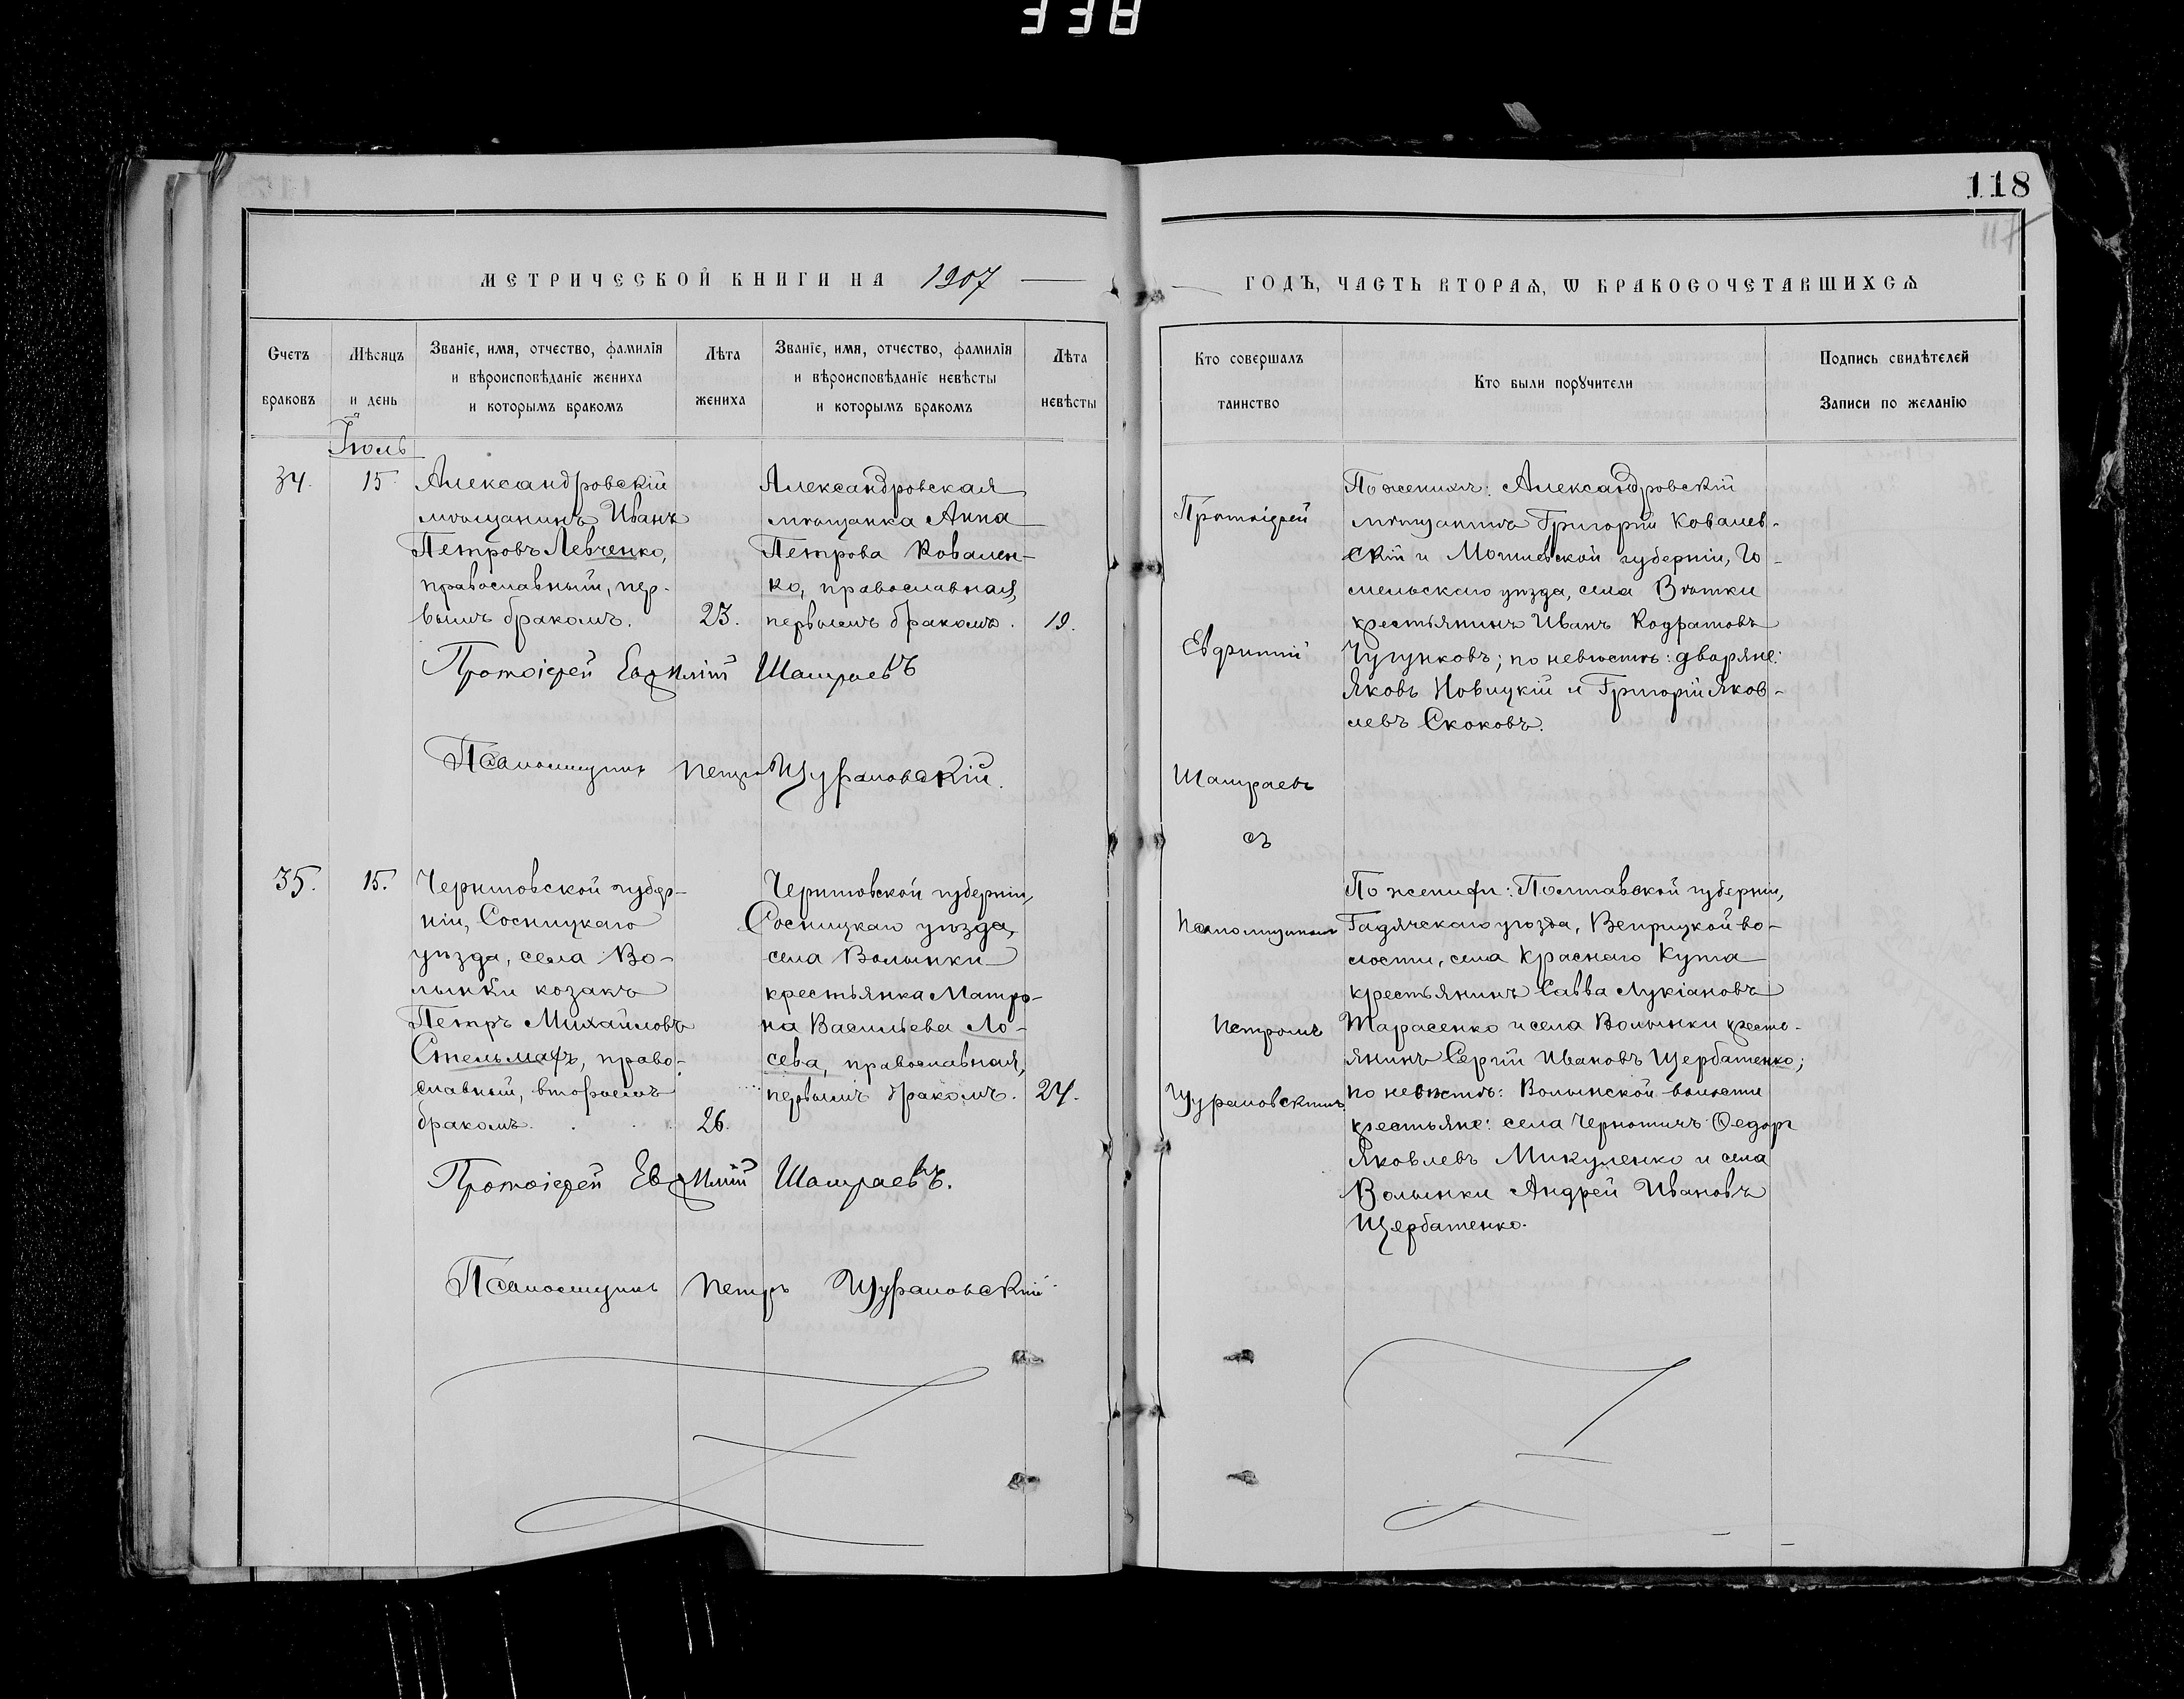 338
118
117
МЕТРИЧЕСКОЙ КНИГИ НА 1907
ГОДЪ, ЧАСТЬ ВТОРАѦ, Ѡ БРАКОСОЧЕТАВШИХСѦ
Счетъ браковъ
Мѣсяцъ и день
Званіе, имя, отчество, фамилія
и вѣроисповѣданіе жениха
и которымъ бракомъ
Лѣта жениха
Званіе, имя, отчество, фамилія
и вѣроисповѣданіе невѣсты
и которымъ бракомъ
Лѣта невѣсты
Кто совершалъ
таинство
Кто были порꙋчители
Подпись свидѣтелей
Записи по желанію
Іюль
34.
15.
Александровскій
мѣщанинъ Иванъ
Петровъ Левченко,
православный, пер-
вымъ бракомъ.
23.
Александровская
мѣщанка Анна
Петрова Ковален-
ко, православная,
первымъ бракомъ.
19.
Протоіерей Евфимій Шатраевъ
Псаломщикъ Петръ Щуровскій.
Протоіерей
Евфимій
Шатраевъ
съ
Псаломщикомъ
Петромъ
По женихѣ: Александровскій
мѣщанинъ Григорій Ковалев-
скій и Могилевской губерніи, Го-
мельскаго уѣзда, села Вѣтки
крестьянинъ Иванъ Кодратовъ
Чугунковъ; по невѣстѣ: дворяне:
Яковъ Новицкій и Григорій Яков-
левъ Скоковъ.
35.
15.
Черниговской губер-
ніи, Сосницкаго
уѣзда, села Во-
лынки козакъ
Петръ Михайловъ
Стельмахъ, право-
славный, вторымъ
бракомъ.
26.
Черниговской губерніи,
Сосницкаго уѣзда,
села Волынки
крестьянка Матро-
на Васильева Ло-
сева, православная,
первымъ бракомъ.
24.
Протоіерей Евфимій Шатраевъ.
Псаломщикъ Петръ
По женихѣ: Полтавской губерніи,
Гадячскаго уѣзда, Веприцкой во-
лости, села Краснаго Кута
крестьянинъ Савва Лукіановъ
Тарасенко и села Волынки кресть-
янинъ Сергій Ивановъ Щербатенко;
по невѣстѣ: Волынской волости
крестьяне: села Чернотичъ Ѳедоръ
Яковлевъ Микуленко и села
Волынки Андрей Ивановъ
Щербатенко.